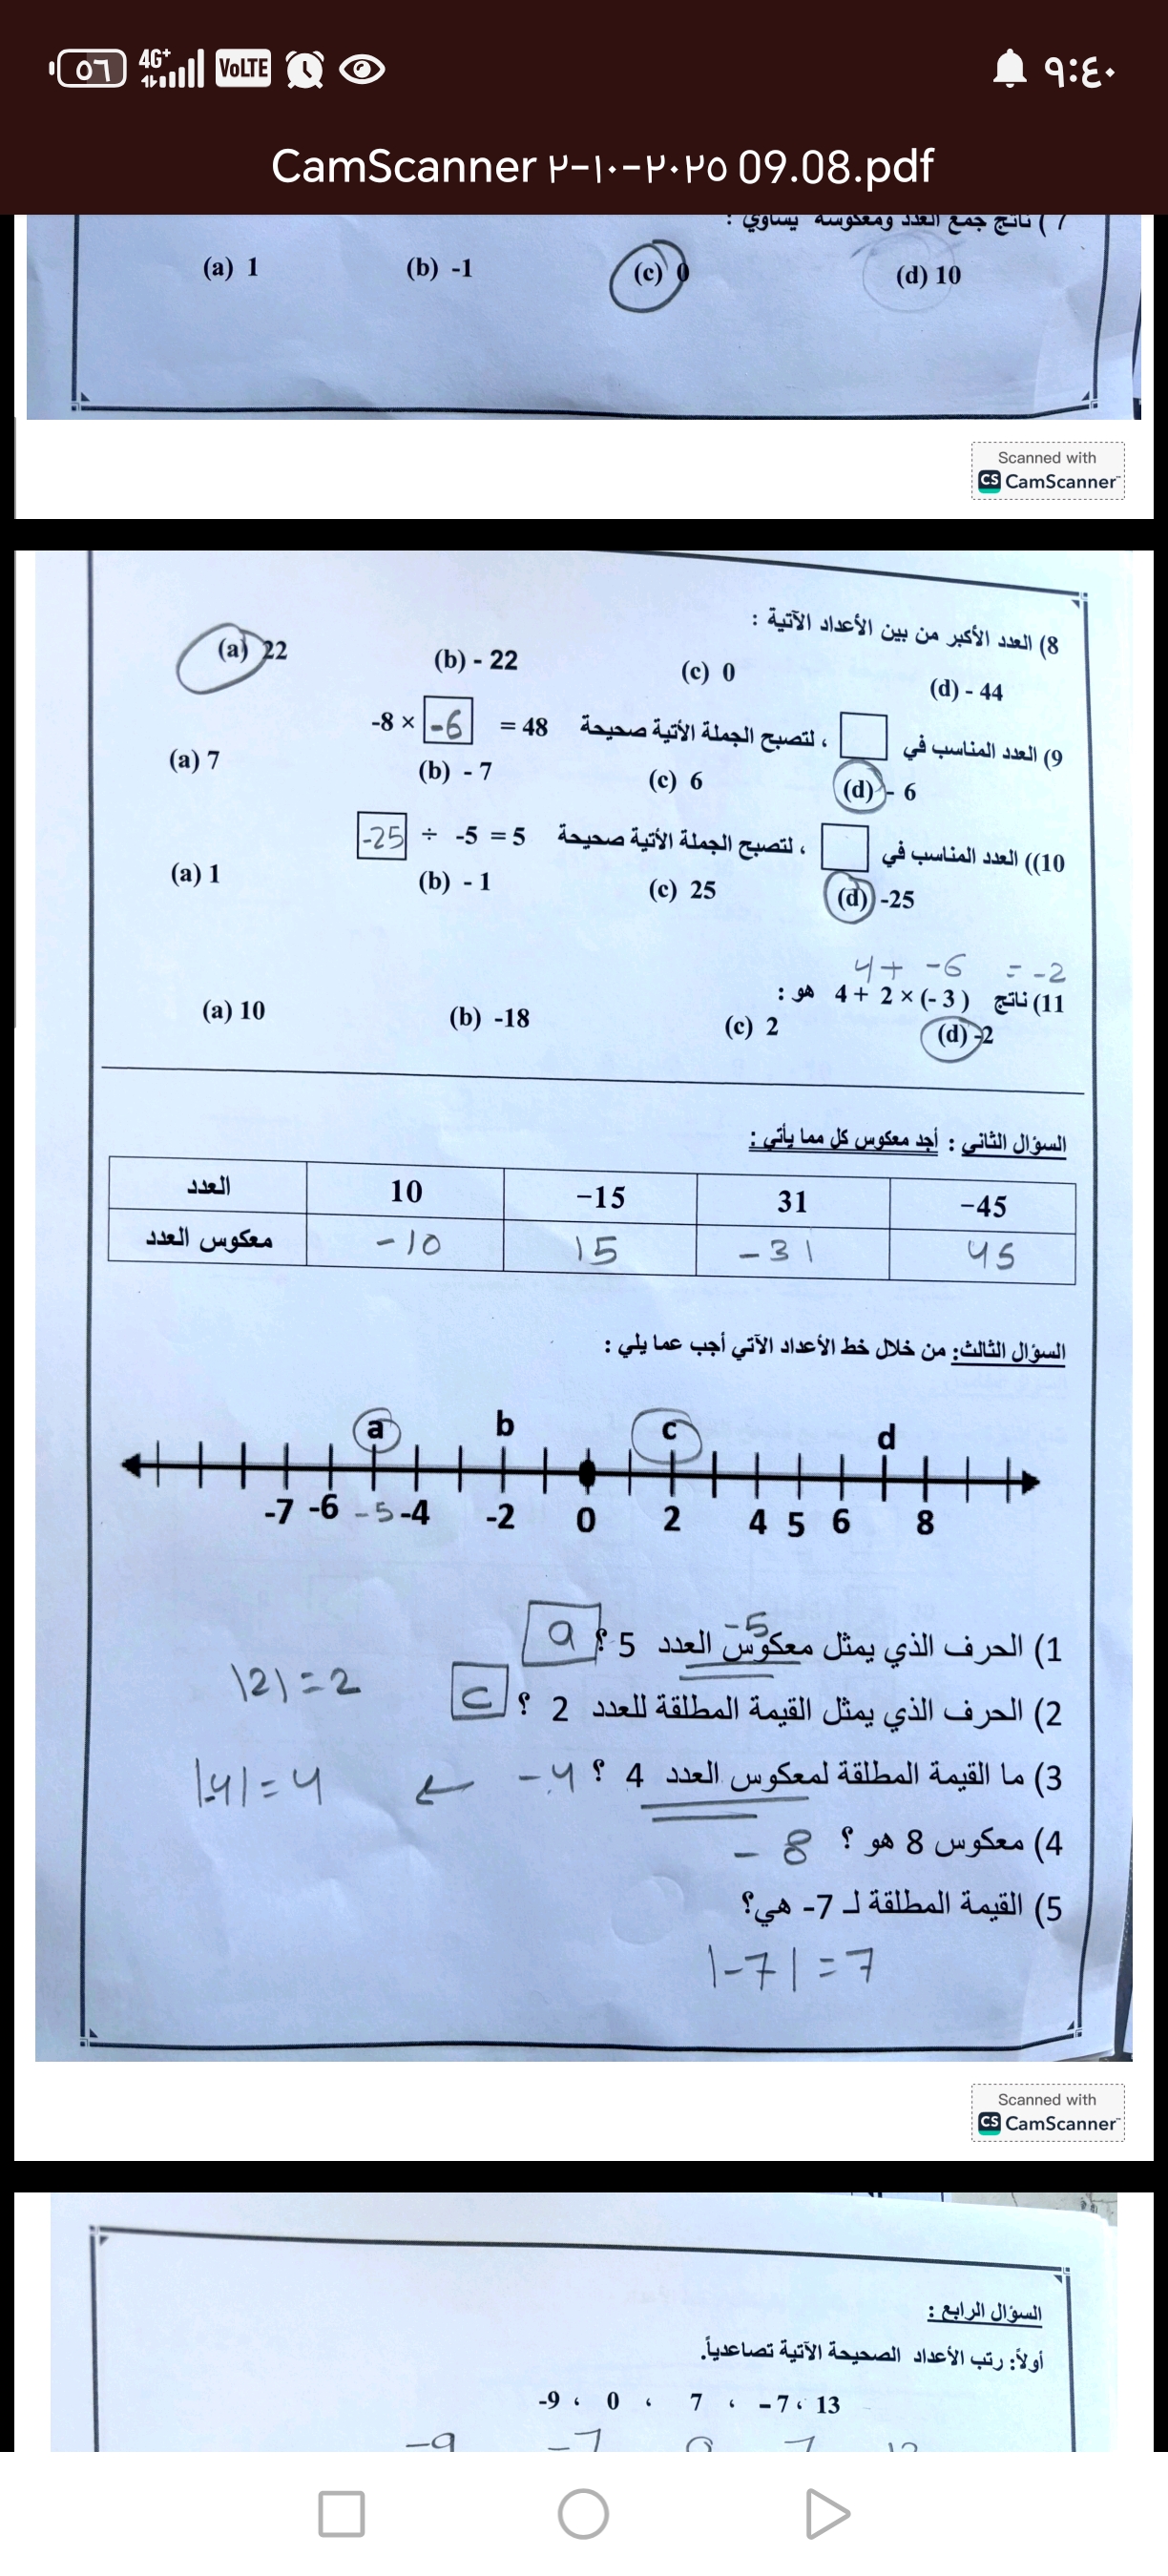 ٥٦ 4G+ VoLTE ٩:٤٠
CamScanner ٢-١٠-٢٠٢٥ 09.08.pdf
7 ) ناتج جمع العدد ومعكوسه يساوي :
(a) 1 (b) -1 (c) 0 (d) 10
Scanned with
CS CamScanner
8) العدد الأكبر من بين الأعداد الآتية :
(a) 22 (b) - 22 (c) 0 (d) - 44
9) العدد المناسب في ، لتصبح الجملة الأتية صحيحة -8 × -6 = 48
(a) 7 (b) - 7 (c) 6 (d) - 6
10)) العدد المناسب في ، لتصبح الجملة الأتية صحيحة -25 ÷ -5 = 5
(a) 1 (b) - 1 (c) 25 (d) -25
4+ -6 = -2
11) ناتج 4 + 2 × (- 3 ) هو :
(a) 10 (b) -18 (c) 2 (d) -2
السؤال الثاني : أجد معكوس كل مما يأتي :
العدد 10 −15 31 −45
معكوس العدد -10 15 -31 45
السؤال الثالث: من خلال خط الأعداد الآتي أجب عما يلي :
a b c d
-7 -6 -5 -4 -2 0 2 4 5 6 8
-5
1) الحرف الذي يمثل معكوس العدد 5 ؟ a
2) الحرف الذي يمثل القيمة المطلقة للعدد 2 ؟ c |2|=2
3) ما القيمة المطلقة لمعكوس العدد 4 ؟ -4 ← |-4|=4
4) معكوس 8 هو ؟ - 8
5) القيمة المطلقة لـ 7- هي؟
|-7|=7
Scanned with
CS CamScanner
السؤال الرابع :
أولاً: رتب الأعداد الصحيحة الآتية تصاعدياً.
-9 ، 0 ، 7 ، -7 ، 13
-9 -7 0 7 13